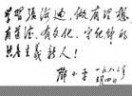 学习张海迪，做有理想、
有道德、有文化、守纪律的
共产主义新人！
邓小平 一九八三年